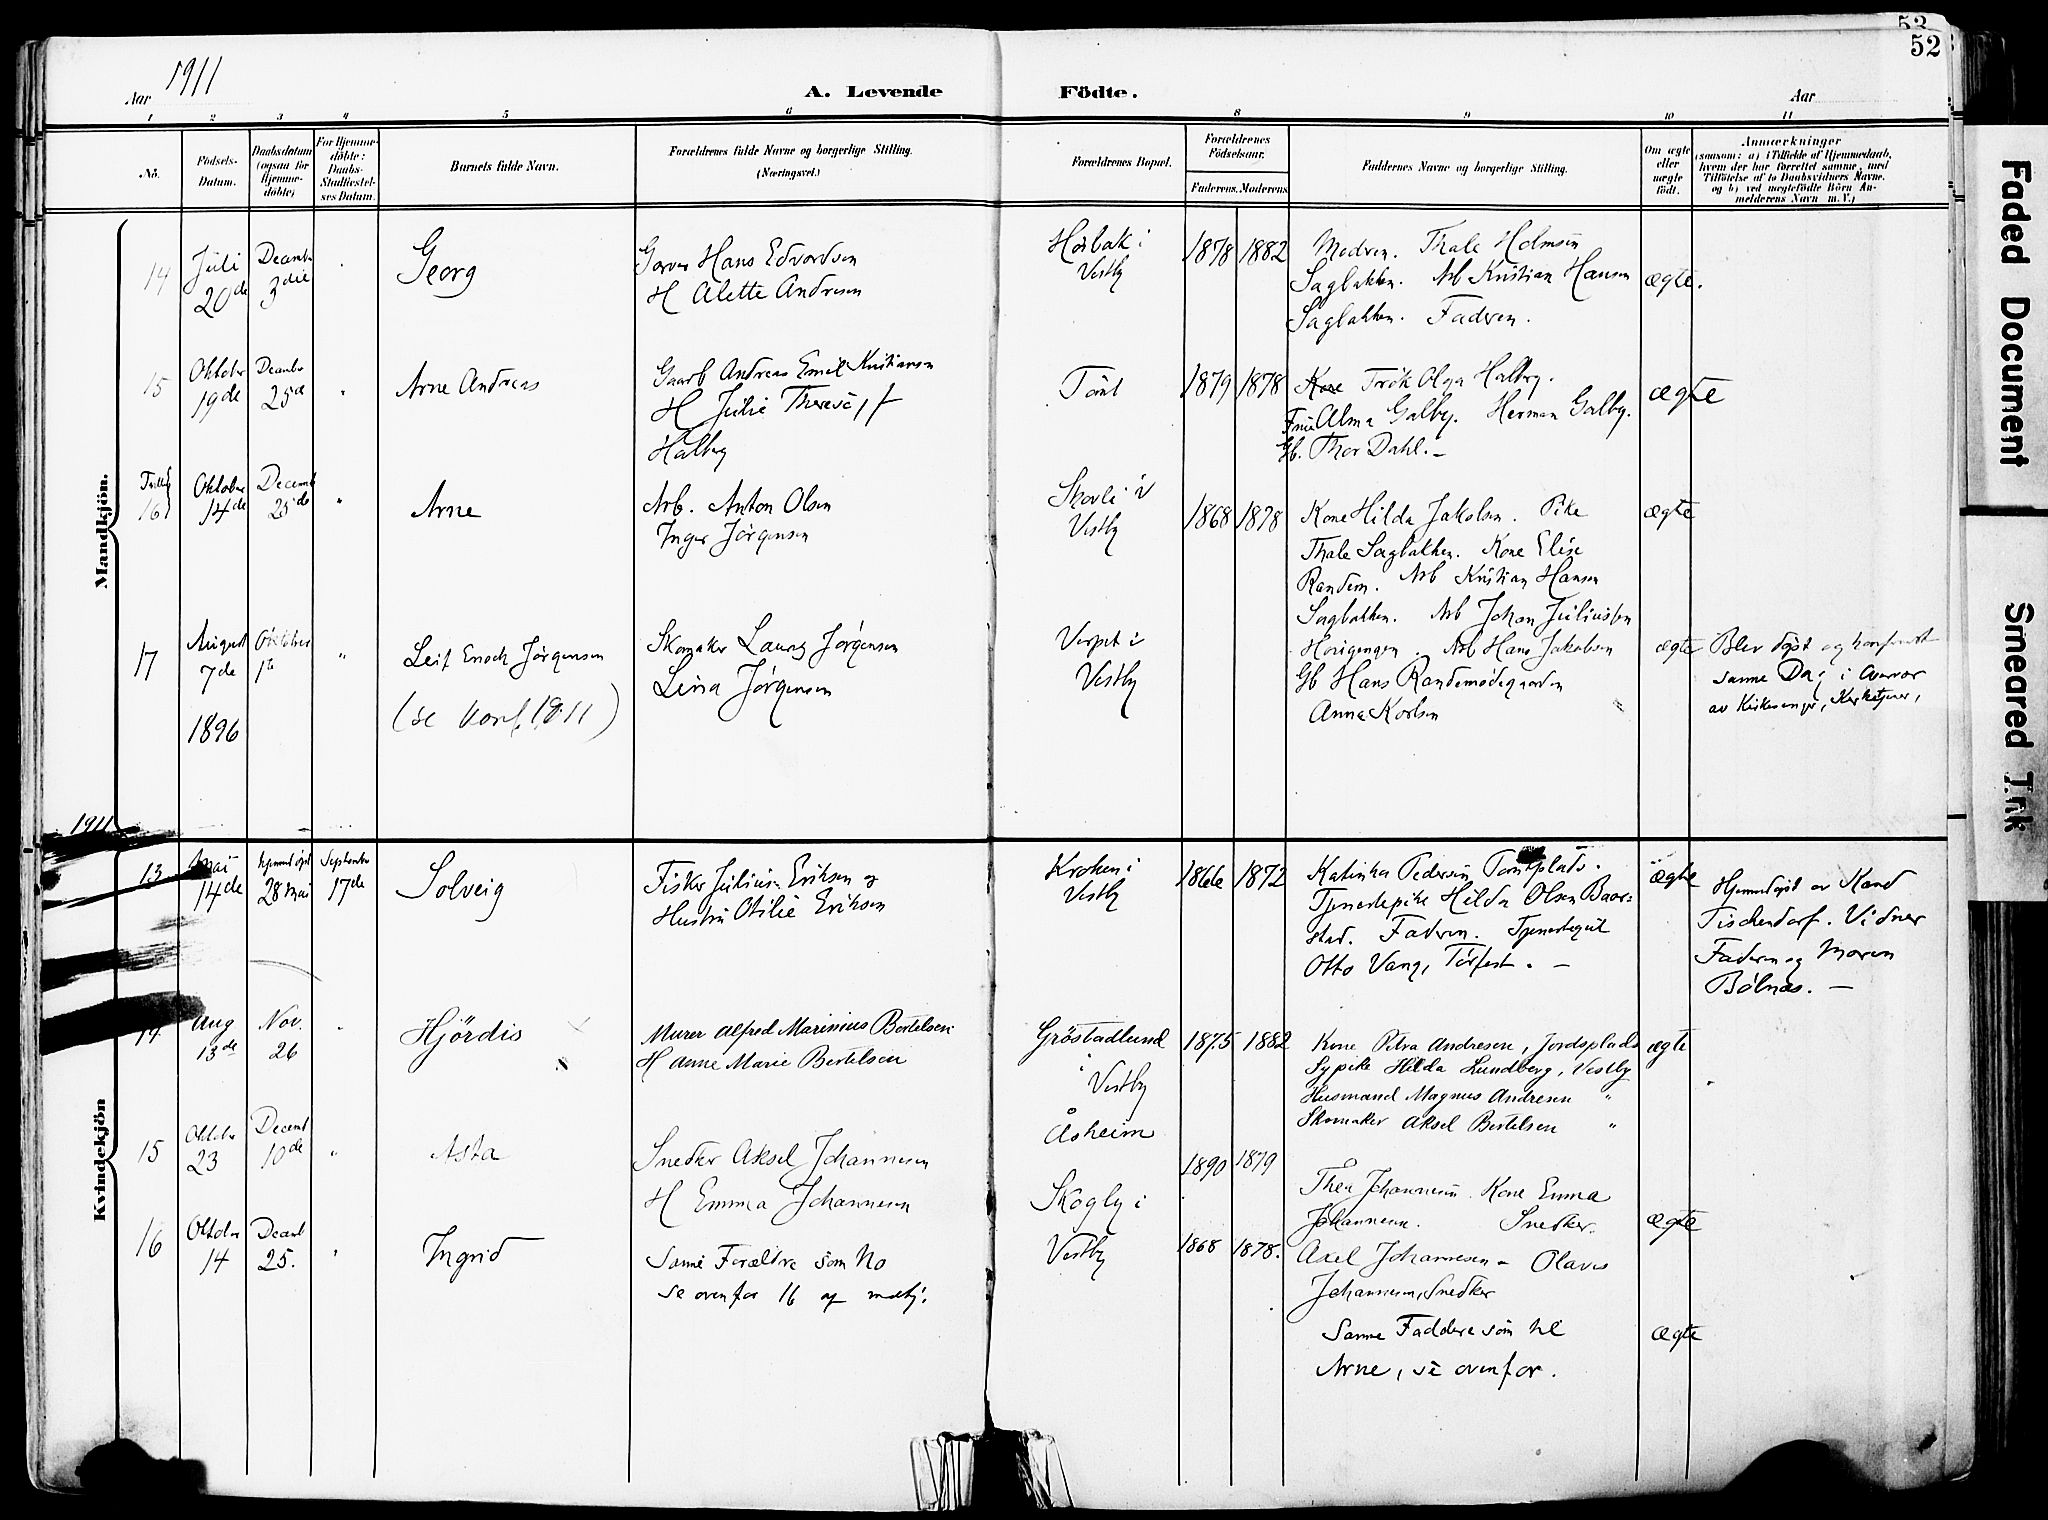 53
52
Aar 1911
A. Levende Födte.
Aar
1 2 3 4 5 6 8 9 10 11
No.
Födsels-Datum.
Daabsdatum (ogsaa for Hjemme-döbte)
For Hjemme-döbte: Daabs-Stadfæstel-ses Datum.
Barnets fulde Navn.
Forældrenes fulde Navne og borgerlige Stilling.
(Næringsvei.)
Forældrenes Bopæl.
Forældrenes Födselsaar.
Faderens. Moderens.
Faddernes Navne og borgerlige Stilling.
Om ægte eller uægte födt.
Anmærkninger
(saasom: a) i Tilfælde af Hjemmedaab, hvem der har forrettet samme, med Tilföielse af to Daabsvidners Navne. og b) ved uægtefödte Börn An-melderens Navn m. V.)
Mandkjön.
14
Juli 20de
Decemb. 3die
Georg
Garver Hans Edvardsen
H Alette Andresen
i Vestby
1878 1882
Modren. Thale Holmsen
Sagbakken. Arb Kristian Hansen
Sagbakken. Faderen.
ægte.
15
Oktober 19de
Decembr 25de
Arne Andreas
Gaarb Andreas Emil Kristiansen
H Julie Therese, f
Halberg
1879 1878
Olga Halberg.
Alma Galby. Herman Galby.
Gb. Thor Dahl. –
ægte
16
Oktober 14de
Decemb 25de
"
Arne
Arb. Anton Olsen
Inger Jørgensen
Skovli i Vestby
1868 1878
Kone Hilda Jakobsen. Pike
Thale Sagbakken. Kone Elise
Randem. Arb Kristian Hansen
Sagbakken. Arb Johan Juliussen
ægte
17
August 7de
1896
Oktober 1te
"
Leif Enoch Jørgensen
(se konf. 1911)
Skomaker Laurs Jørgensen
Lina Jørgensen
Verpet i Vestby
Horigengen. Arb Hans Jakobsen
Gb Hans Randemødegaarden
Anna Karlsen
ægte
Blev døpt og konfirmert
samme Dag i
av Kirkesanger, Kirketjener,
1911
Kvindekjön
13
Mai 14de
Hjemmedøpt 28 Mai
September 17de
Solveig
Fisker Julius Eriksen og
Hustru Otilie Eriksen
Kroken i Vestby
1866 1872
Katinka Pedersen
Tjenestepike Hilda Olsen Baar-
stad. Faderen. Tjenestegut
Otto Vang, –
ægte
Hjemmedøpt av Kand
Tischendorf. Vidner
Faderen og Moren
Bølnes. –
14
Aug 13de
Nov. 26
Hjördis
Murer Alfred Marinius Bertelsen
H Anne Marie Bertelsen
Gröstadlund
i
Vestby
1875 1882
Kone Petra Andresen, Jordsplads
Sypike Hilda Lundberg, Vestby
Husmand Magnus Andresen "
Skomaker Aksel Bertelsen "
ægte
15
Oktobr 23
Decemb 10de
"
Asta
Snedker Aksel Johannesen
H Emma Johannesen
Åsheim
1890 1879
Thea Johannesen Kone Emma
Johannesen. Snedker.
Axel Johannesen – Olaves
Johannesen, Snedker
ægte
16
Oktober 14
Decemb 25.
"
Ingrid
Samme Forældre som No
se ovenfor 16 af mdkj.
Skogly i
Vestby
1868 1878.
Samme Faddere som til
Arne, se ovenfor.
ægte
Faded Document
Smeared Ink